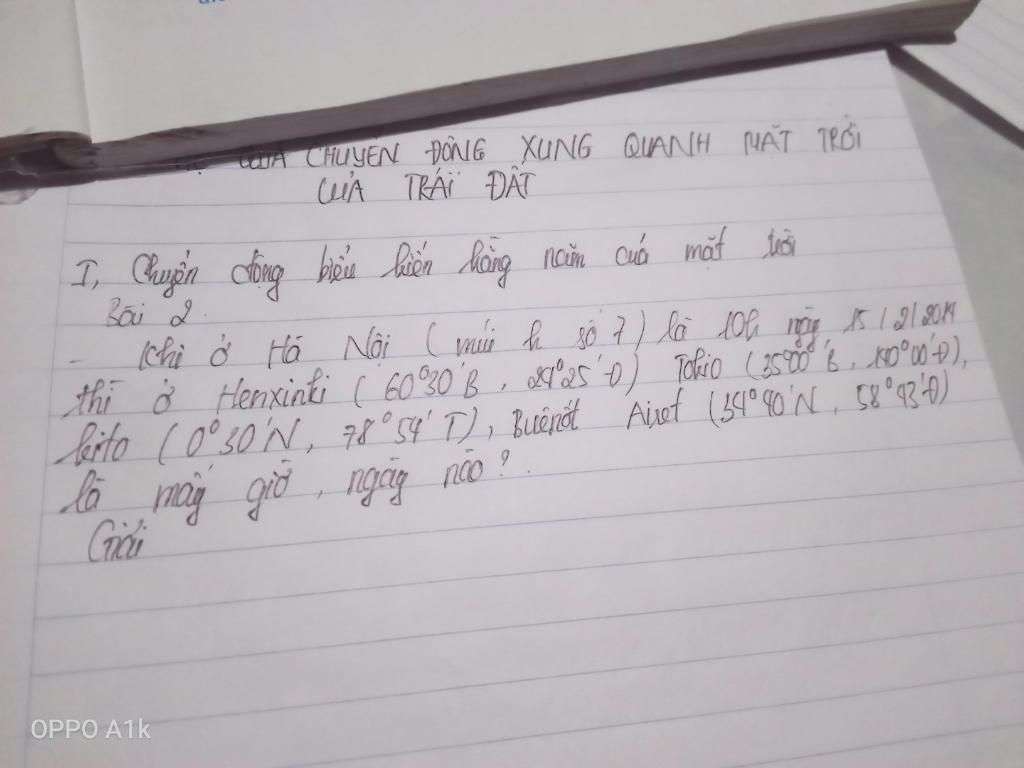 CỦA CHUYỂN ĐỘNG XUNG QUANH MẶT TRỜI
CỦA TRÁI ĐẤT
I, Chuyển động biểu kiến hằng năm của mặt trời
Bài 2.
- Khi ở Hà Nội (múi h số 7) là 10h ngày 15/2/2019
thì ở Henxinki (60°30'B, 24°25'Đ) Tokio (35°00'B, 140°00'Đ),
kito (0°30'N, 78°54'T), Buênôt Airet (34°40'N, 58°43'Đ)
là mấy giờ, ngày nào?.
Giải
OPPO A1k